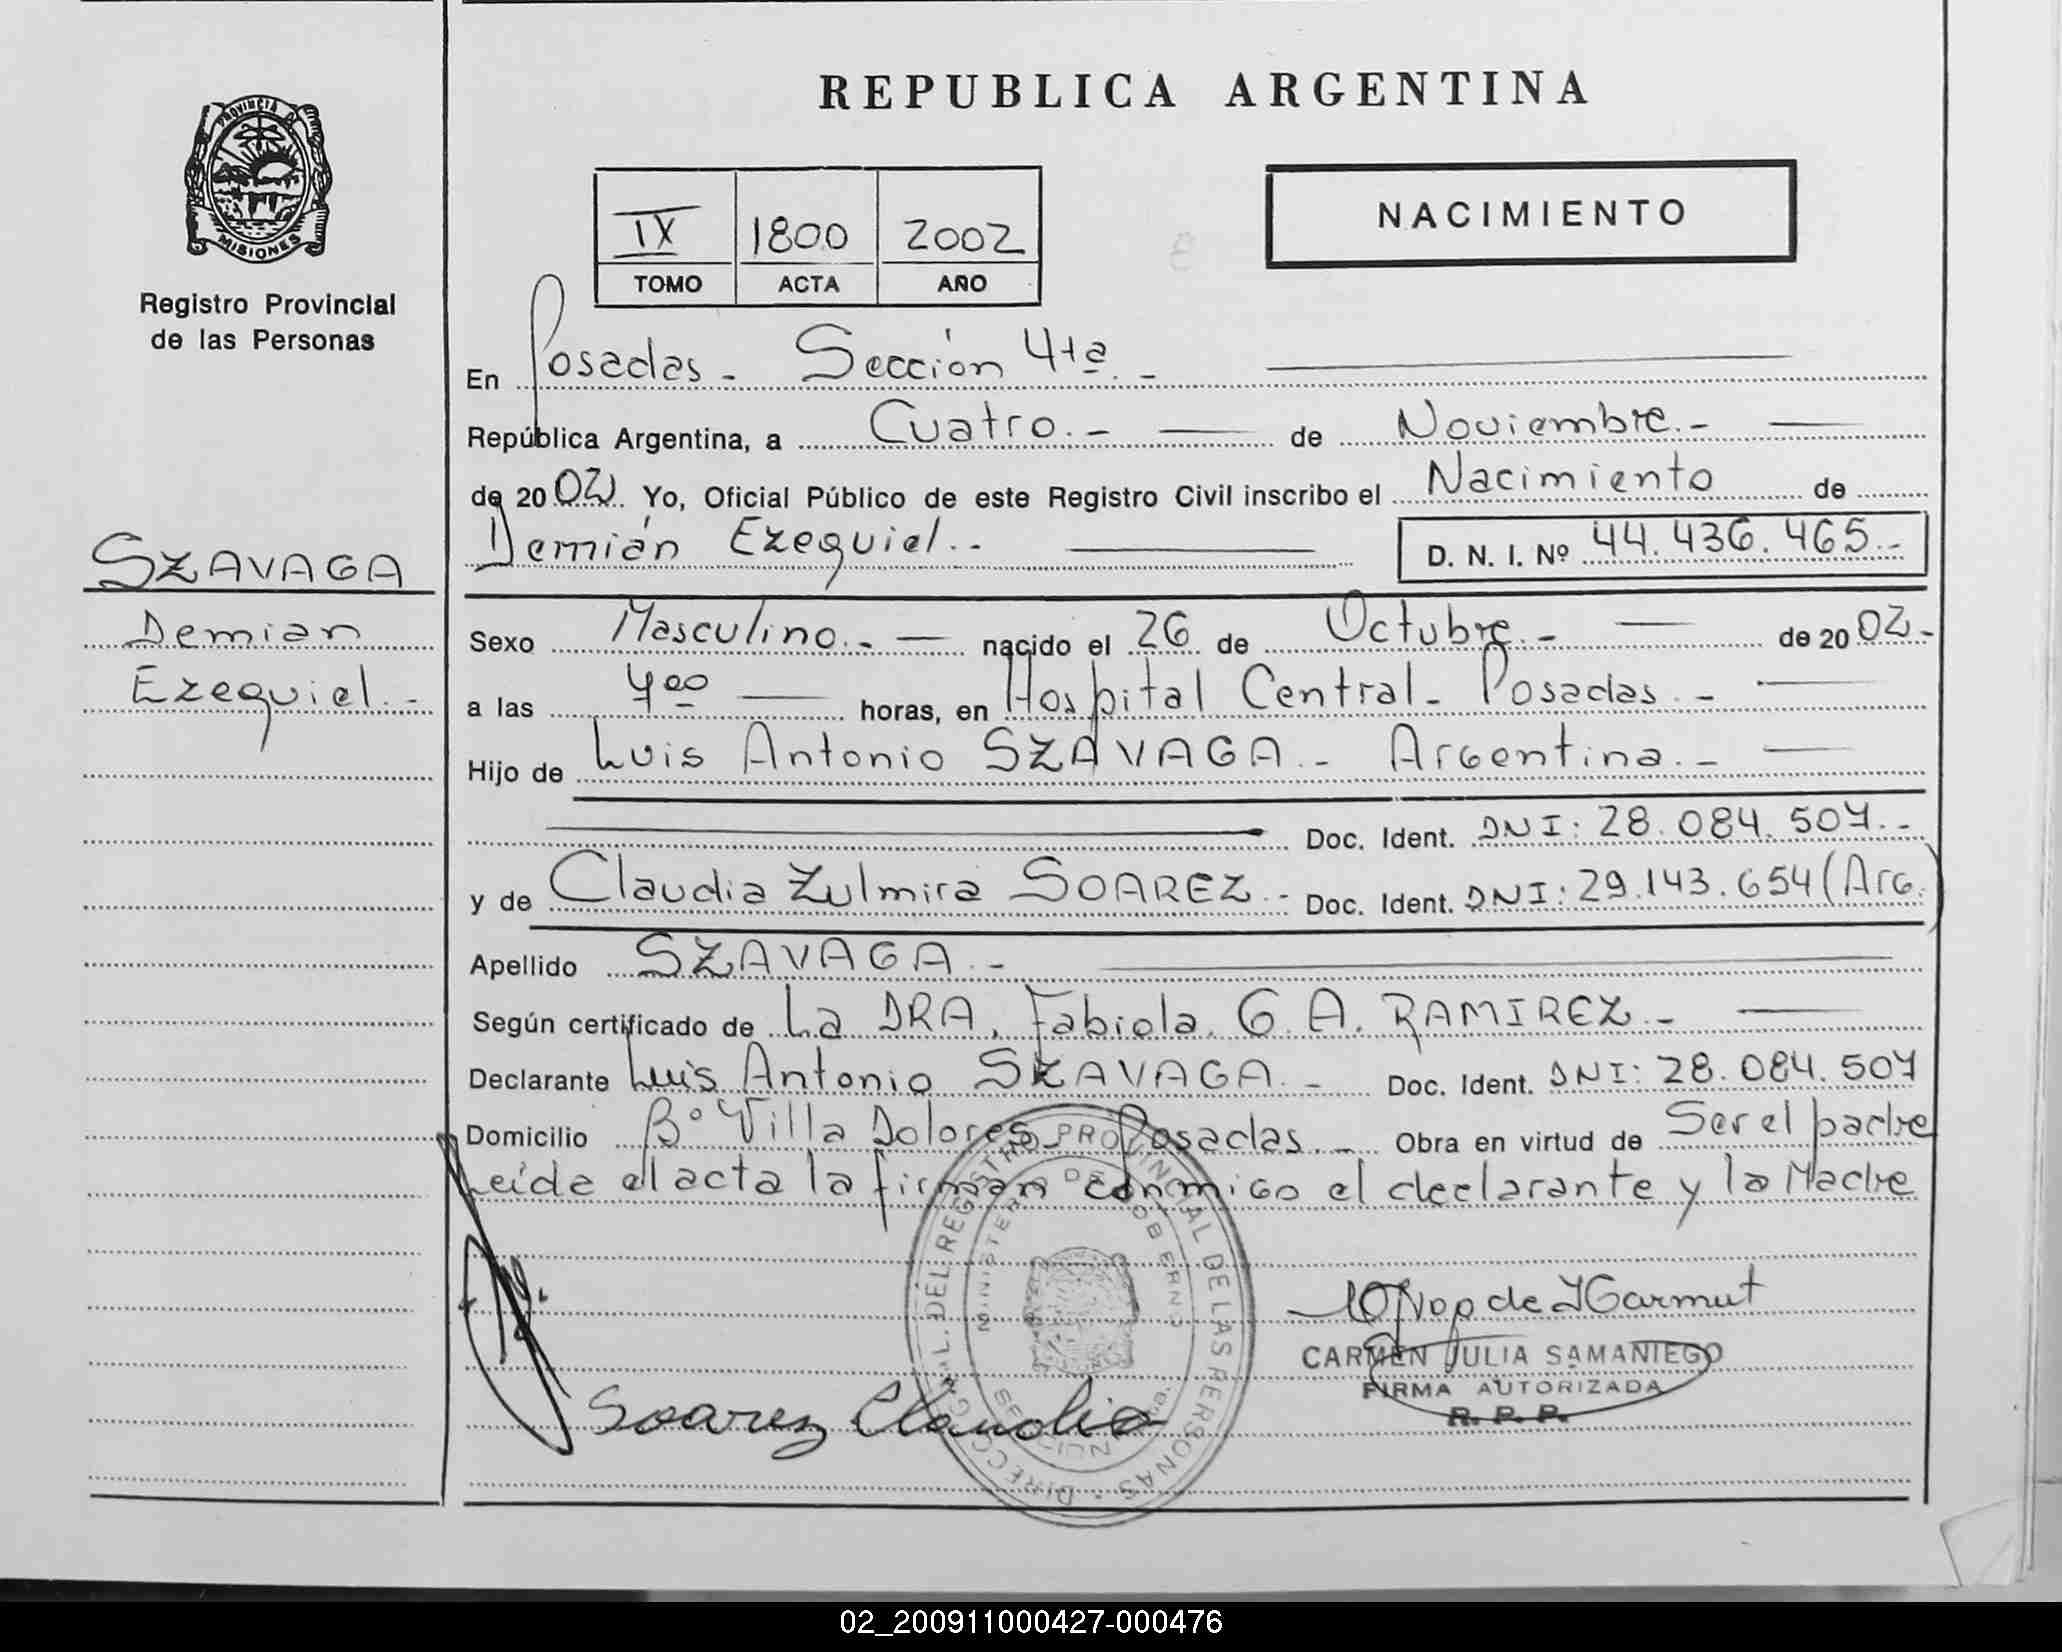 REPUBLICA ARGENTINA
PROVINCIA DE
MISIONES
Registro Provincial
de las Personas
IX 1800 2002
TOMO ACTA AÑO
NACIMIENTO
SZAVAGA
Demian
Ezequiel.-
En Posadas - Sección 4ta.-
República Argentina, a Cuatro.- de Noviembre.-
de 2002. Yo, Oficial Público de este Registro Civil inscribo el Nacimiento de
Demián Ezequiel.- D. N. I. Nº 44.436.465.-
Sexo Masculino.- nacido el 26 de Octubre.- de 2002.-
a las 4 00 horas, en Hospital Central - Posadas.-
Hijo de Luis Antonio SZAVAGA.- Argentina.-
Doc. Ident. DNI: 28.084.507.-
y de Claudia Zulmira SOAREZ.- Doc. Ident. DNI: 29.143.654 (Arg.)
Apellido SZAVAGA.-
Según certificado de La DRA. Fabiola. G. A. RAMIREZ.-
Declarante Luis Antonio SZAVAGA.- Doc. Ident. DNI: 28.084.507
Domicilio Bº Villa Dolores - Posadas.- Obra en virtud de Ser el padre
Leida el acta la firman conmigo el declarante y la Madre
DIRECC. GRAL. DEL REGISTRO PROVINCIAL DE LAS PERSONAS
MINISTERIO DE GOBIERNO
CARMEN JULIA SAMANIEGO
FIRMA AUTORIZADA
R. P. P.
Soarez Claudia
02_200911000427-000476